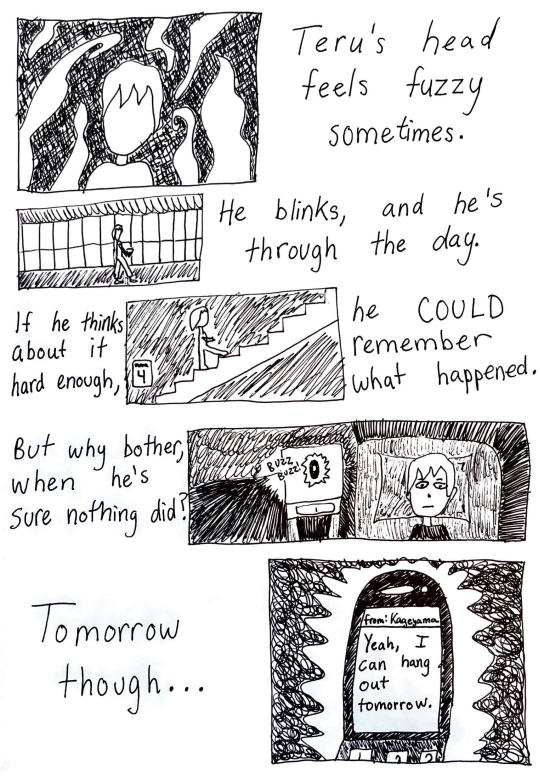 Teru's head
feels fuzzy
sometimes.
He blinks, and he's
through the day.
If he thinks
about it
hard enough,
4
he COULD
remember
what happened.
But why bother,
when he's
sure nothing did?
BUZZ,
BUZZ!
Tomorrow
though...
from: Kageyama
Yeah, I
can hang
out
tomorrow.
1 2 3